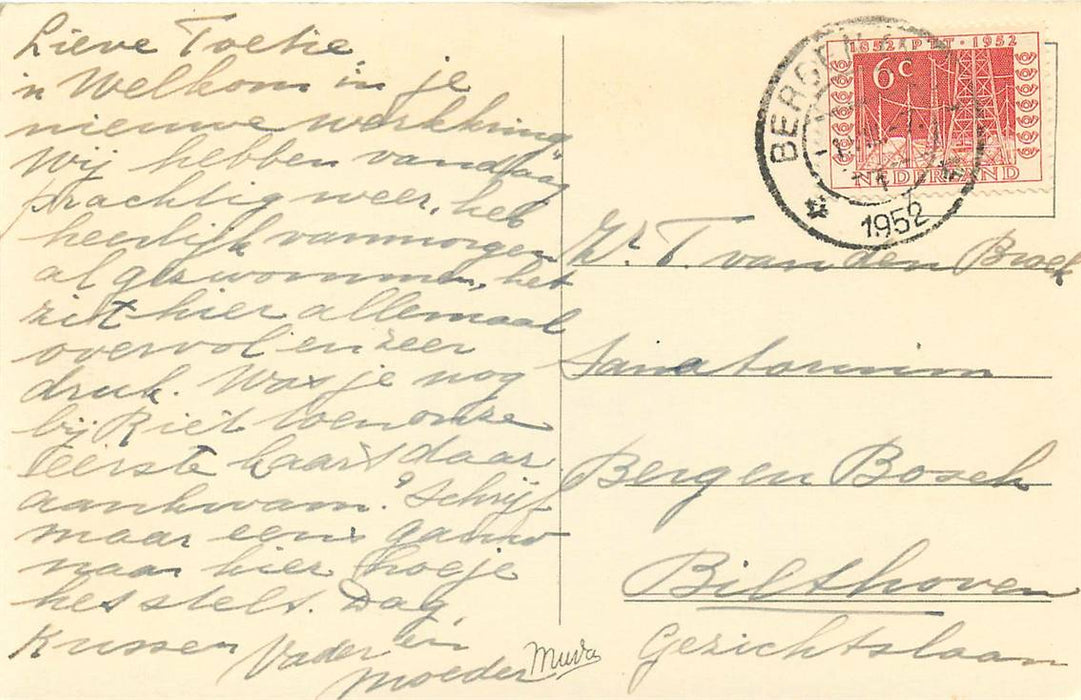 Lieve Toetie
'n Welkom in je
nieuwe werkkring
Wij hebben vandaag
prachtig weer, heb
heerlijk vanmorgen
al gezwommen, het
zit hier allemaal
overvol en zeer
druk. Was je nog
bij Riet toen onze
eerste kaart daar
aankwam? Schrijf
maar eens gauw
naar hier hoe je
het stelt. Dag
Kussen Vader en
Moeder
Muva
1852 PTT 1952
6c
NEDERLAND
BERGEN
1952
Zr. T. van den Broek
Sanatorium
Bergen Bosch
Bilthoven
Gezichtslaan